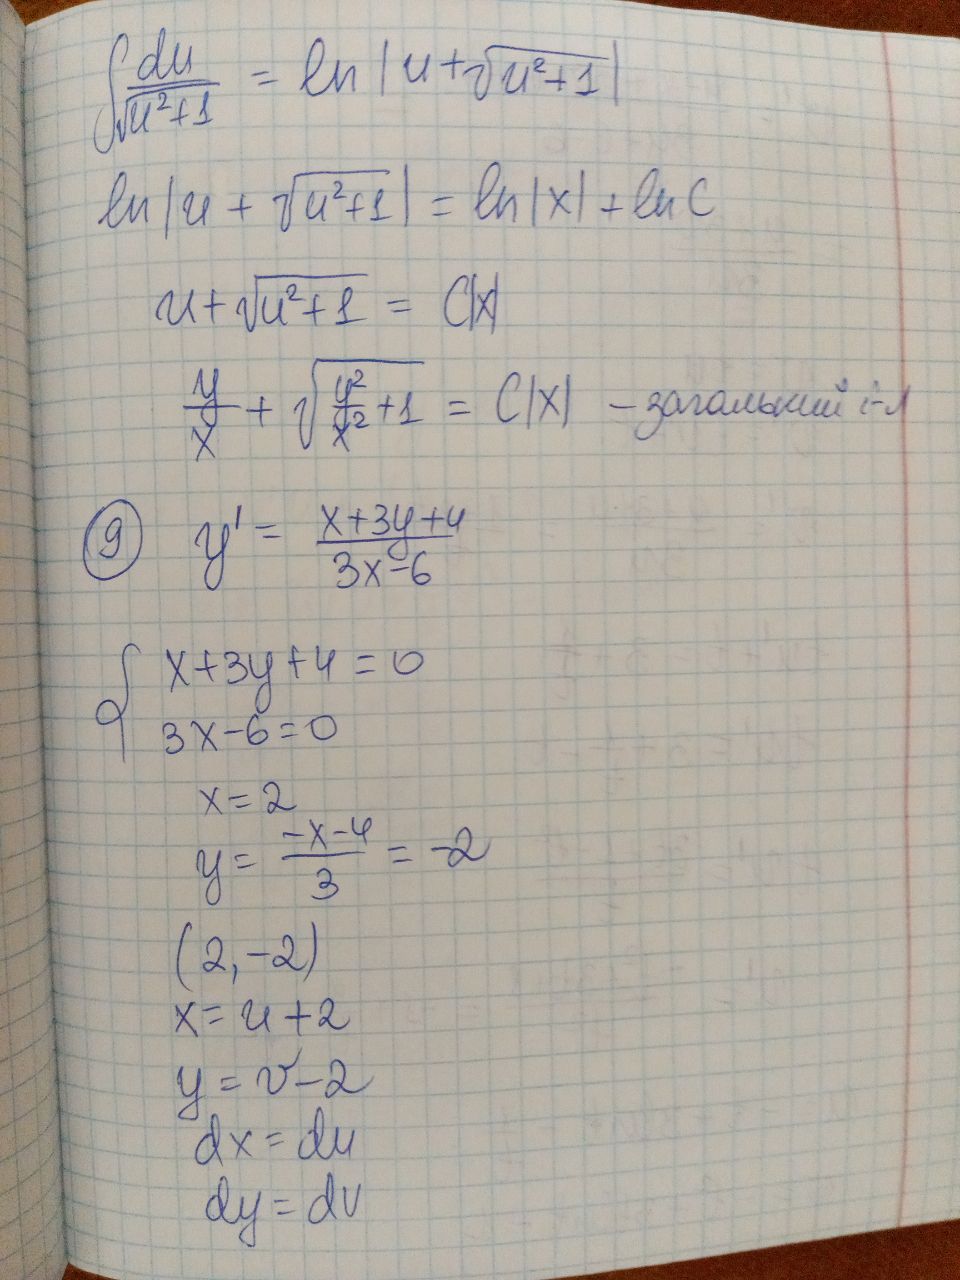 ∫ du/√(u²+1) = ln |u+√(u²+1)|
ln |u + √(u²+1)| = ln|x| + ln C
u+√(u²+1) = C|x|
y/x + √(y²/x² +1) = C|x| – загальний і-л
9 y' = (x+3y+4)/(3x-6)
{ x+3y+4=0
3x-6=0
x=2
y= (-x-4)/3 = -2
(2,-2)
x= u+2
y= v-2
dx= du
dy= dv